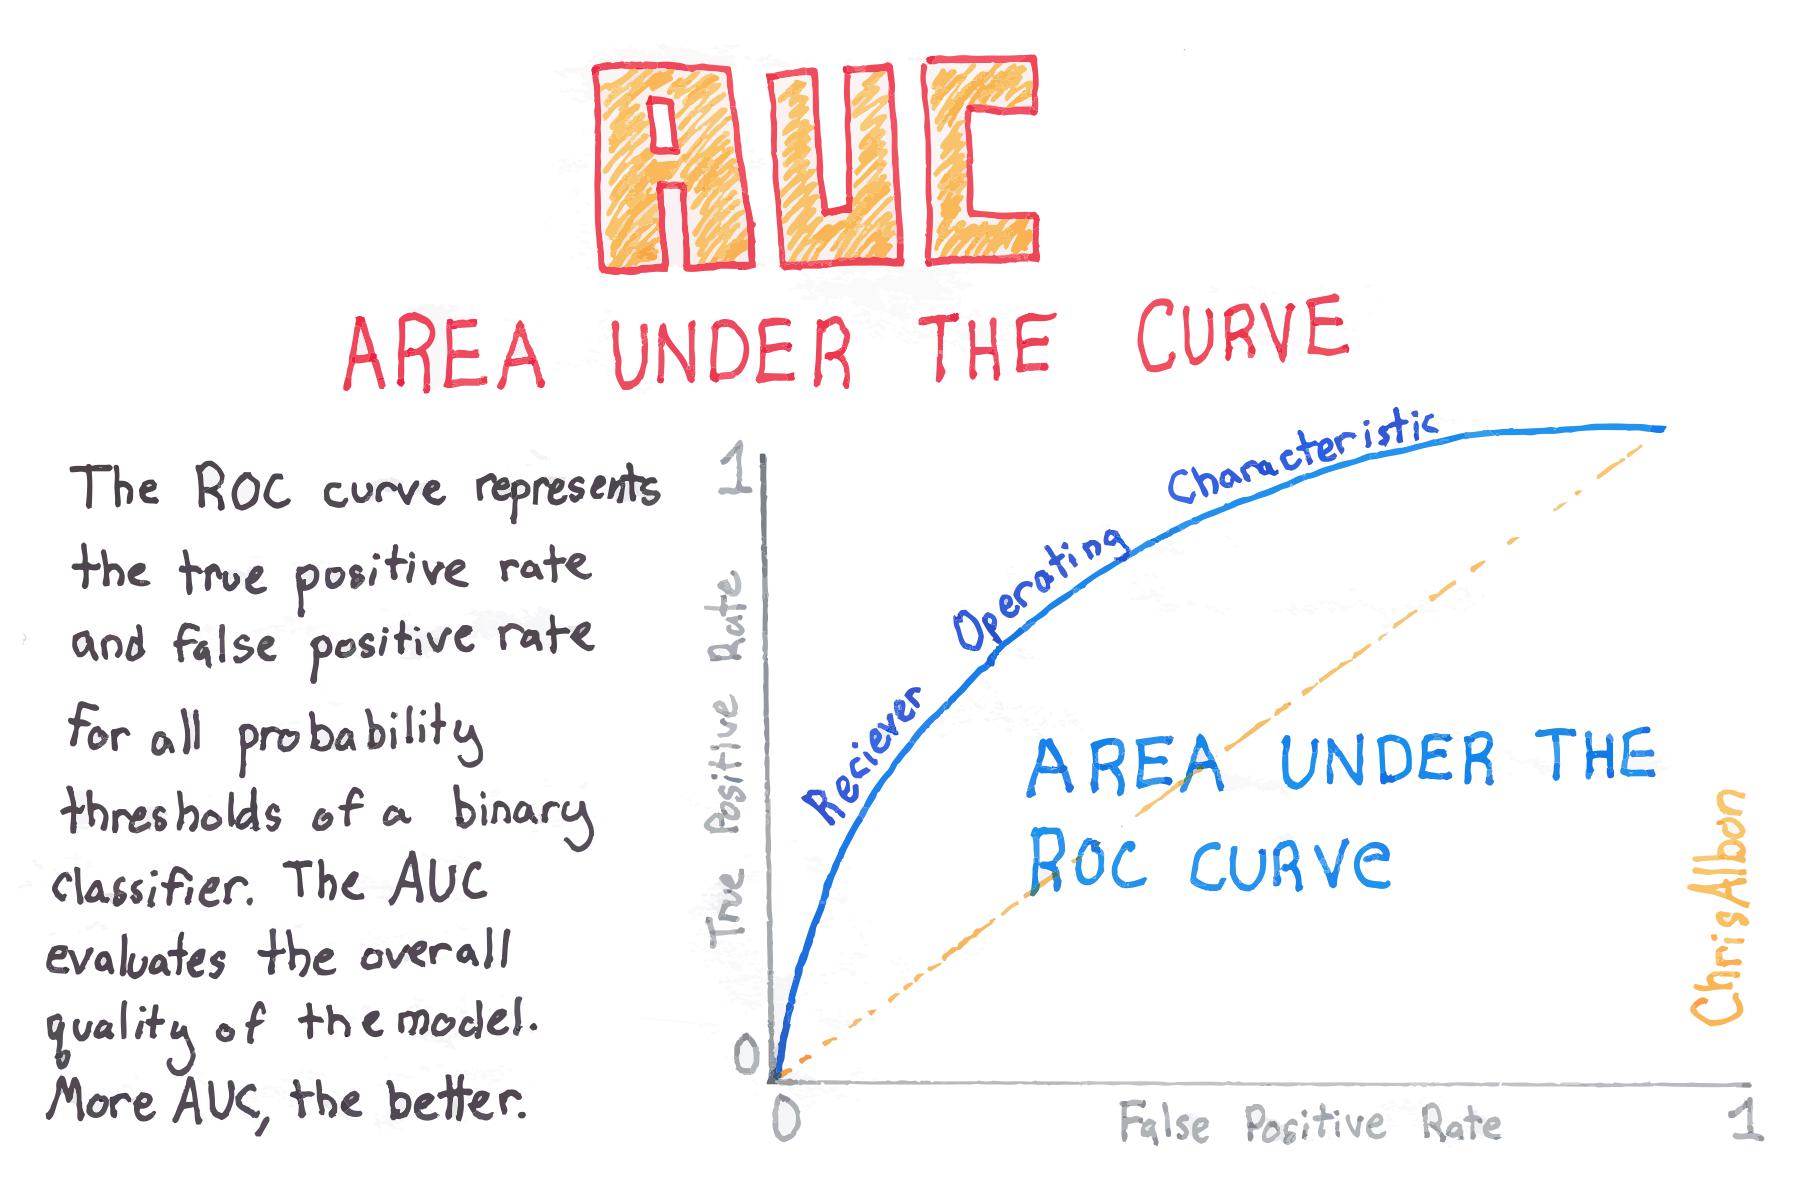 AUC
AREA UNDER THE CURVE
The ROC curve represents
the true positive rate
and false positive rate
for all probability
thresholds of a binary
classifier. The AUC
evaluates the overall
quality of the model.
More AUC, the better.
1
True Positive Rate
0
Reciever Operating Characteristic
AREA UNDER THE
ROC CURVe
0
False Positive Rate
1
ChrisAlbon